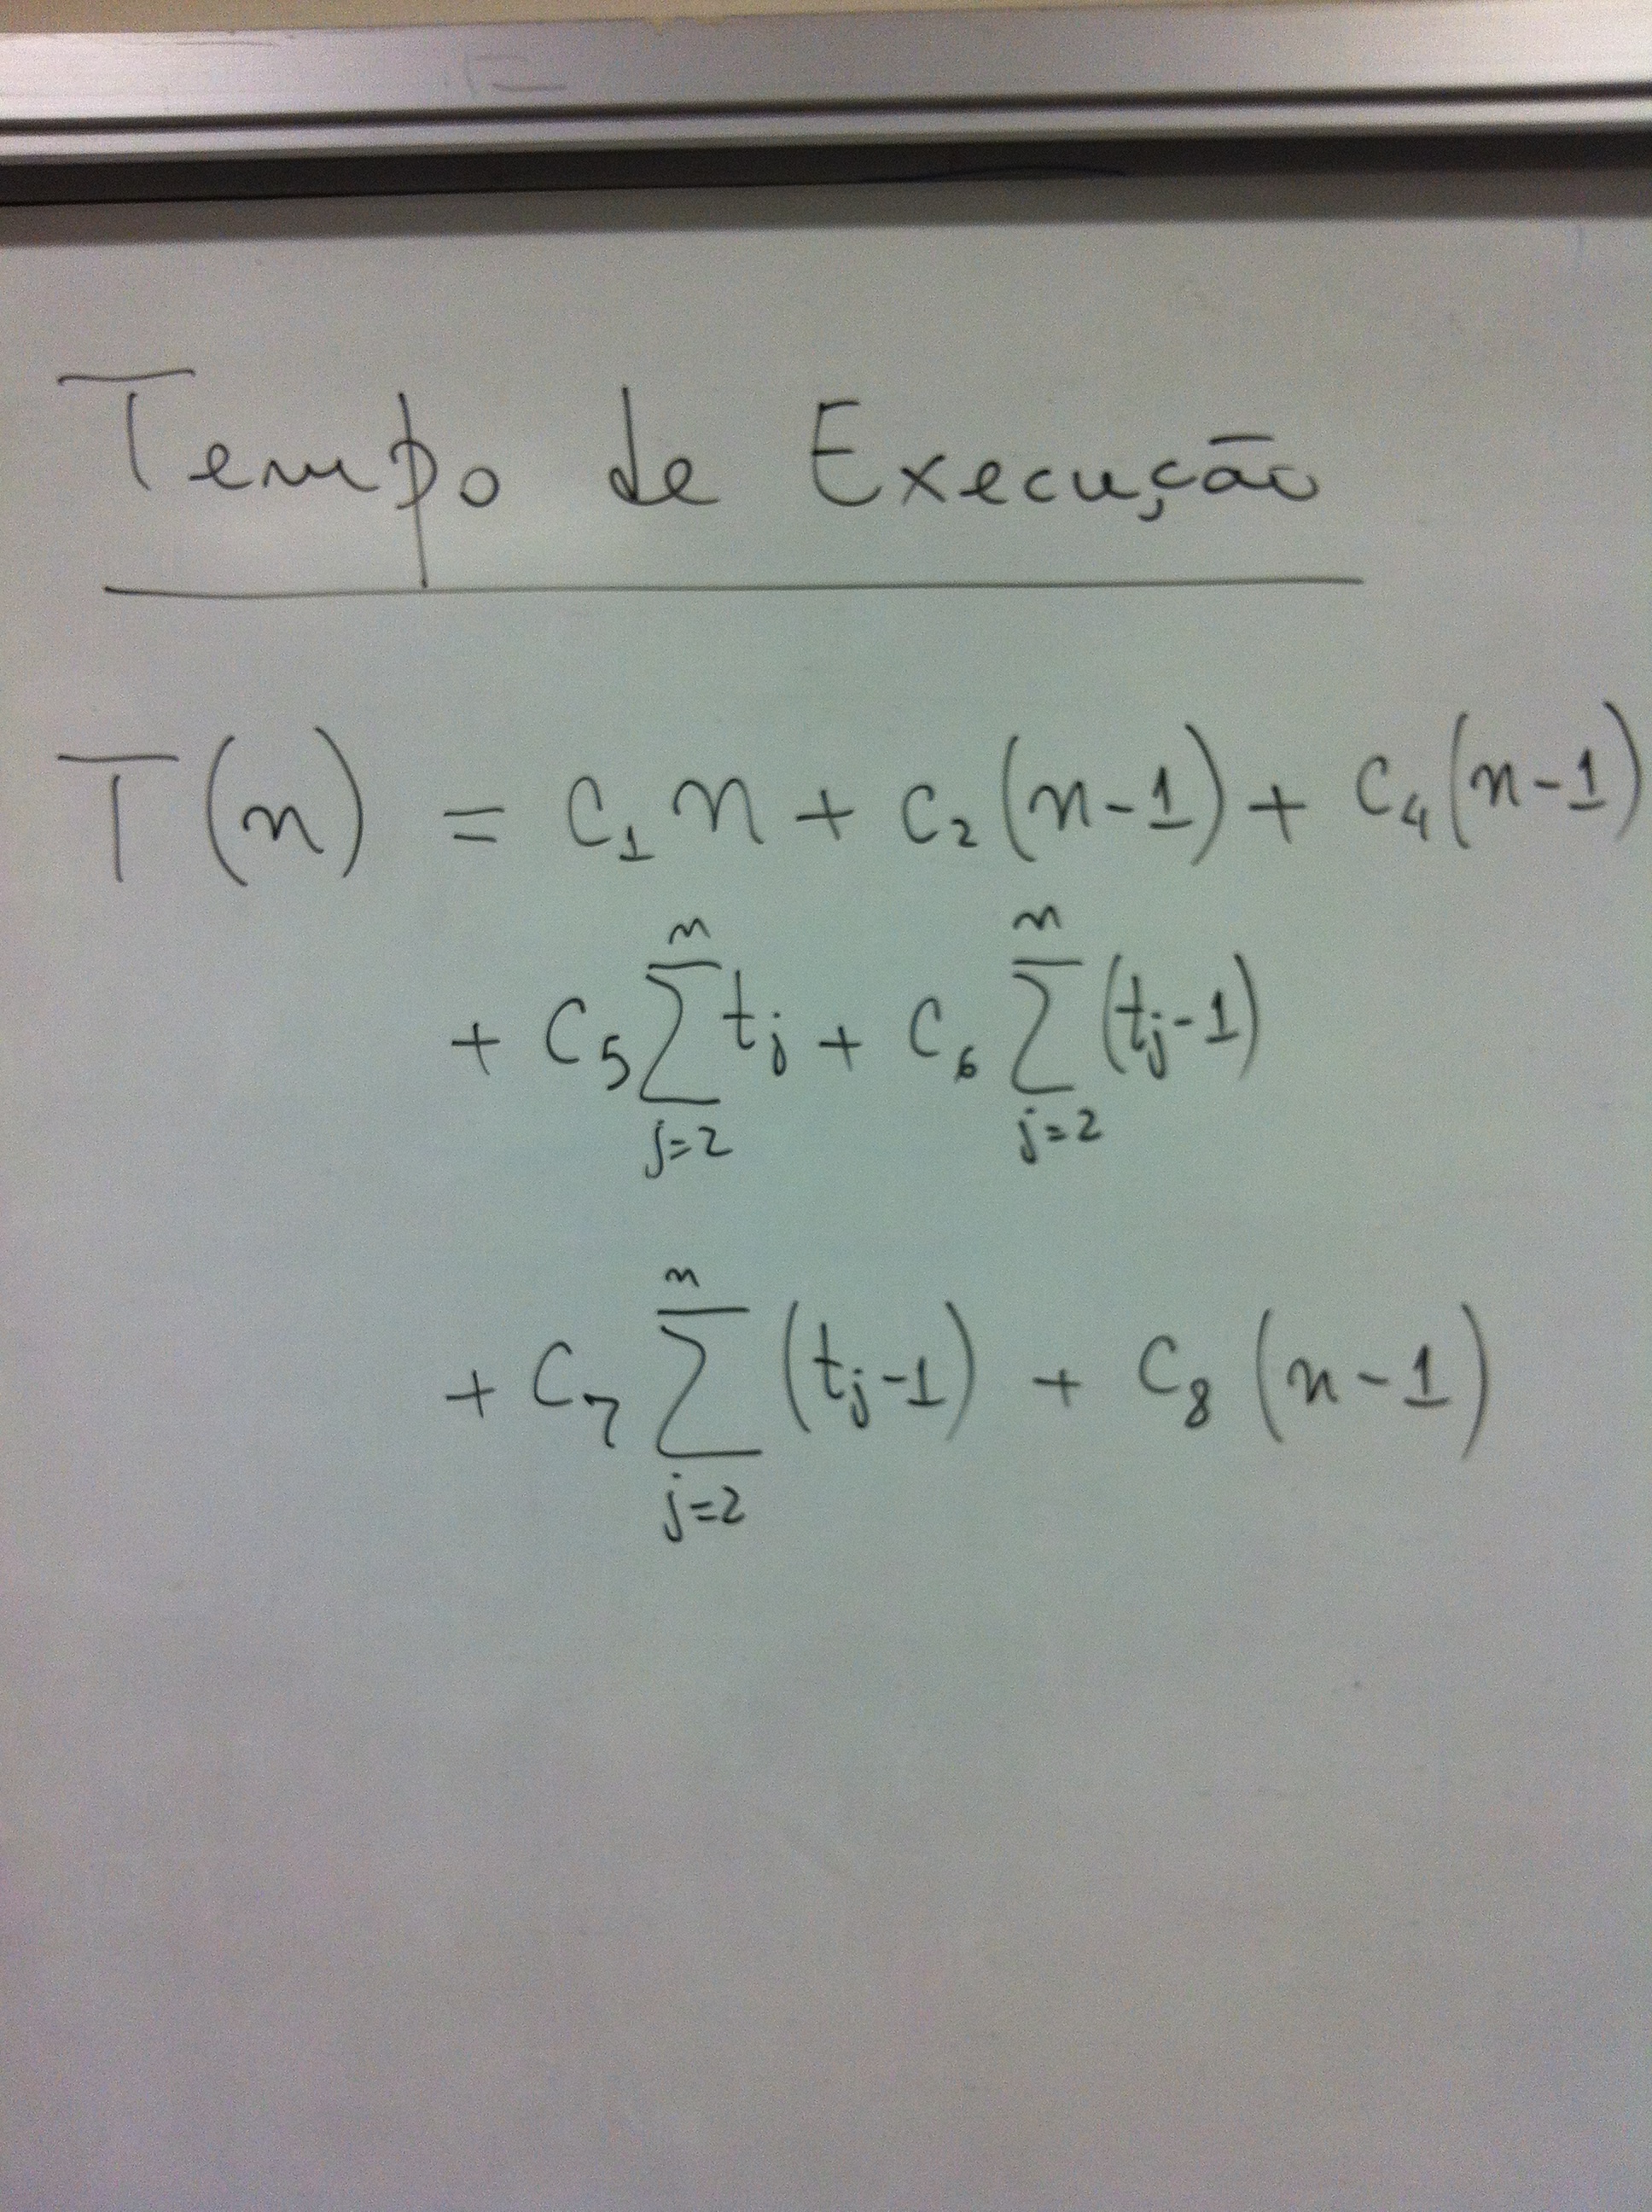 Tempo de Execução
T(n) = c₁n + c₂(n-1) + c₄(n-1)
+ c₅ ∑_{j=2}^{n} t_j + c₆ ∑_{j=2}^{n} (t_j-1)
+ c₇ ∑_{j=2}^{n} (t_j-1) + c₈(n-1)